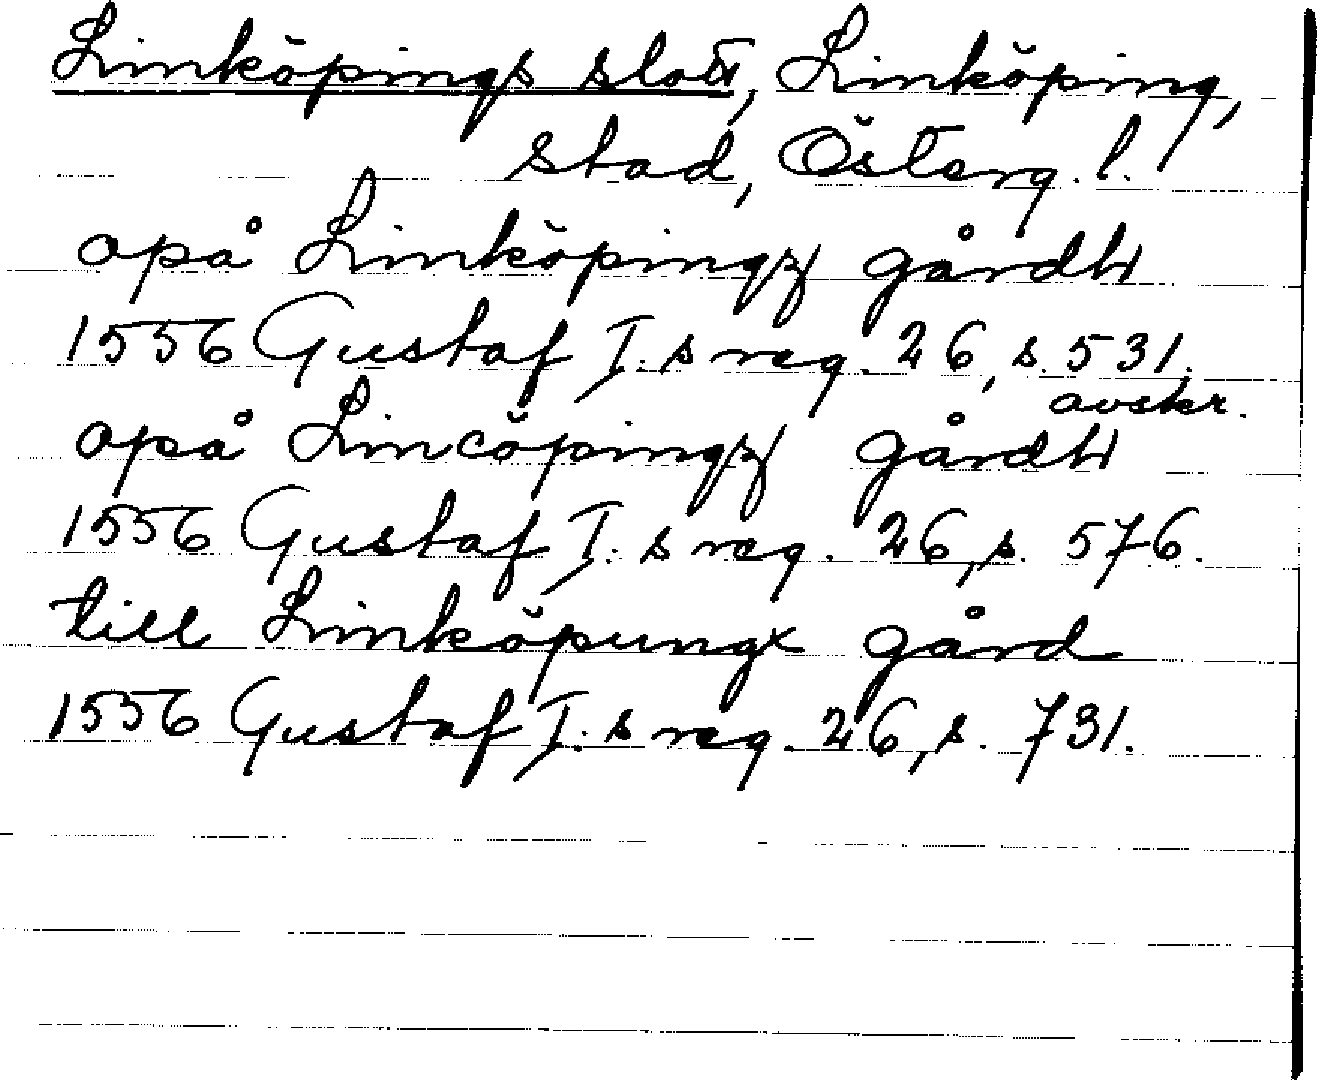 Linköpings slott, Linköping,
stad, Österg. l.
opå Linköpingz gårdh
1556 Gustaf I. s reg. 26, s. 531.
avskr.
opå Lincöpingz gårdh
1556 Gustaf I. s reg. 26, s. 576.
till Linköpungx gård
1556 Gustaf I. s reg. 26, s. 731.